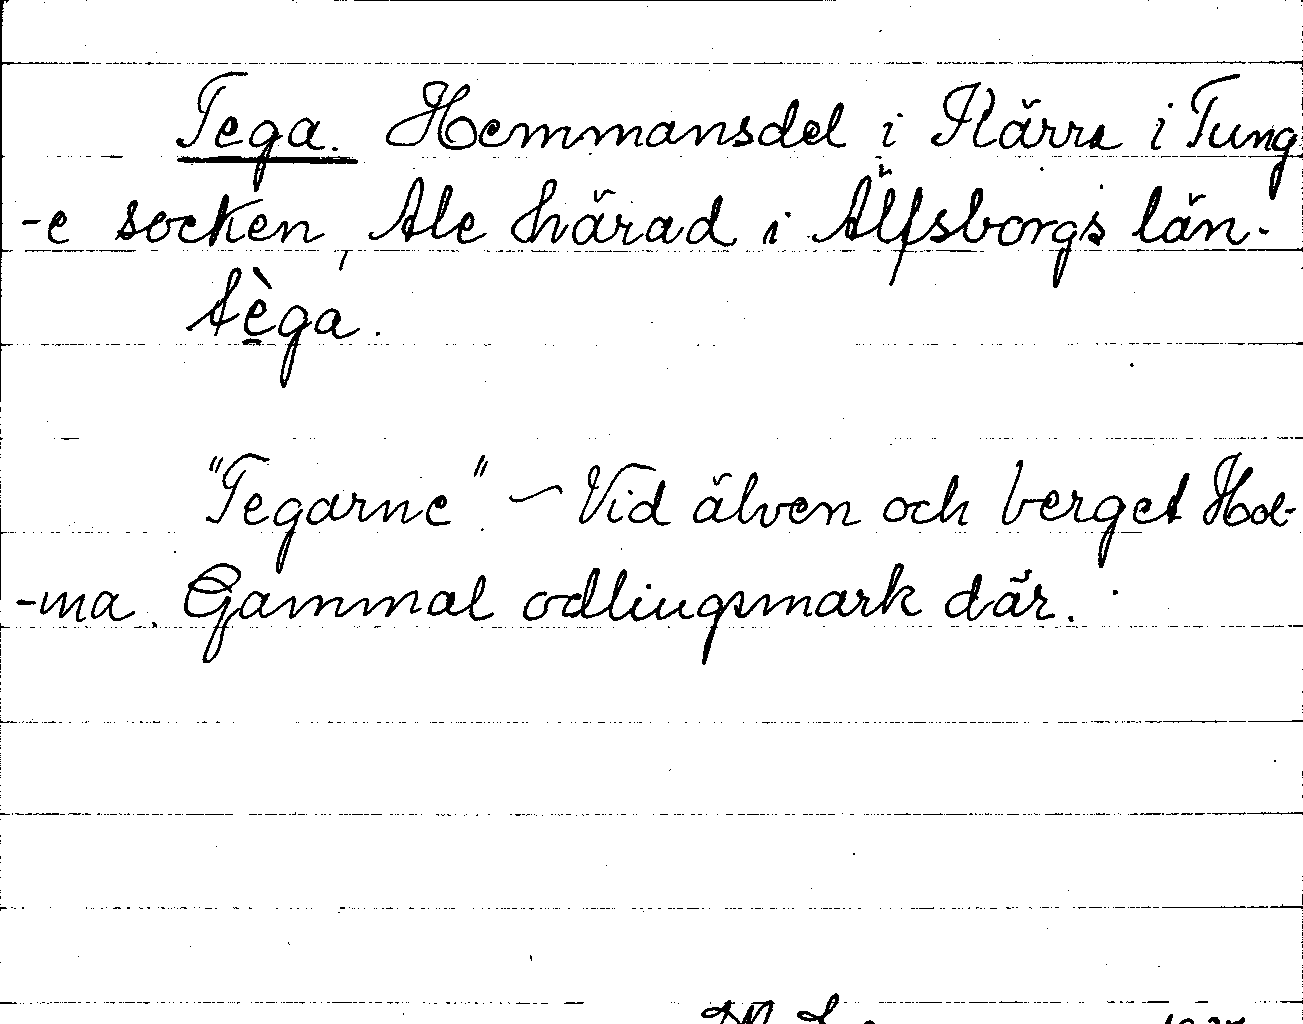 Tega. Hemmansdel i Kärra i Tung
-e socken, Ale härad i Älfsborgs län.
tèga.
"Tegarne". – Vid älven och berget Hol-
-ma. Gammal odlingsmark där.